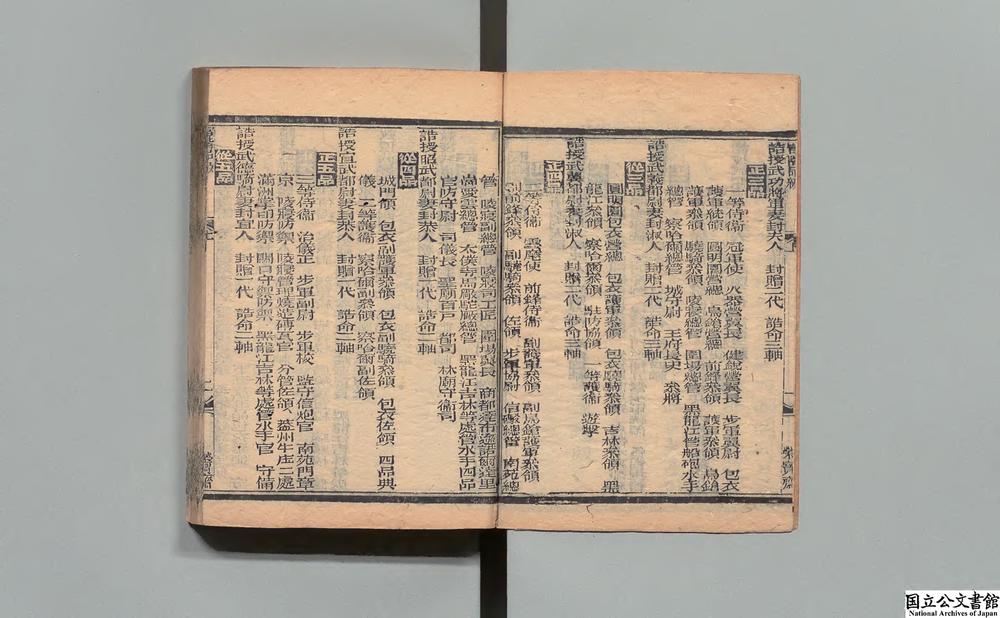 誥授武功將軍妻封夫人　封贈二代　誥命三軸
正三品
一等侍衛　冠軍使　火器營翼長　健銳營翼長　步軍翼尉　包衣
護軍統領　圓明園營總　鳥鎗營總　前鋒叅領　護軍叅領　鳥鎗
護軍叅領　驍騎叅領　陵寢總管　圍場總管　黑龍江營船砲水手
總管　察哈爾總管　城守尉　王府長史　叅將
誥授武義都尉妻封淑人　封贈二代　誥命三軸
從三品
圓明園包衣營總　包衣護軍叅領　包衣驍騎叅領　吉林叅領　黑
龍江叅領　察哈爾叅領　駐防協領　一等護衛　遊擊
誥授武翼都尉妻封淑人　封贈二代　誥命三軸
正四品
二等侍衛　雲麾使　前鋒侍衛　副護軍叅領　副鳥鎗護軍叅領
副前鋒叅領　副驍騎叅領　佐領　步軍協尉　信礮總管　南苑總
管　陵寢副總管　陵寢司工匠　圍場翼長　商都達布遜諾爾達里
岡愛雲總管　太僕寺馬厰駝厰總管　黑龍江吉林等處管水手四品
官防守尉　司儀長　聖廟百戶　都司　林廟守衛司
誥授昭武都尉妻封恭人　封贈一代　誥命二軸
從四品
城門領　包衣副護軍叅領　包衣副驍騎叅領　包衣佐領　四品典
儀　二等護衛　察哈爾副叅領　察哈爾副佐領
誥授宣武都尉妻封恭人　封贈一代　誥命二軸
正五品
三等侍衛　治儀正　步軍副尉　步軍校　監守信炮官　南苑門章
京　陵寢防禦　陵寢管理燒造磚瓦官　分管佐領　蓋州牛庄二處
滿洲掌印防禦　關口守禦防禦　黑龍江吉林等處管水手官　守備
誥授武德騎尉妻封宜人　封贈一代　誥命二軸
從五品
榮寶齋
榮寶齋
国立公文書館
National Archives of Japan